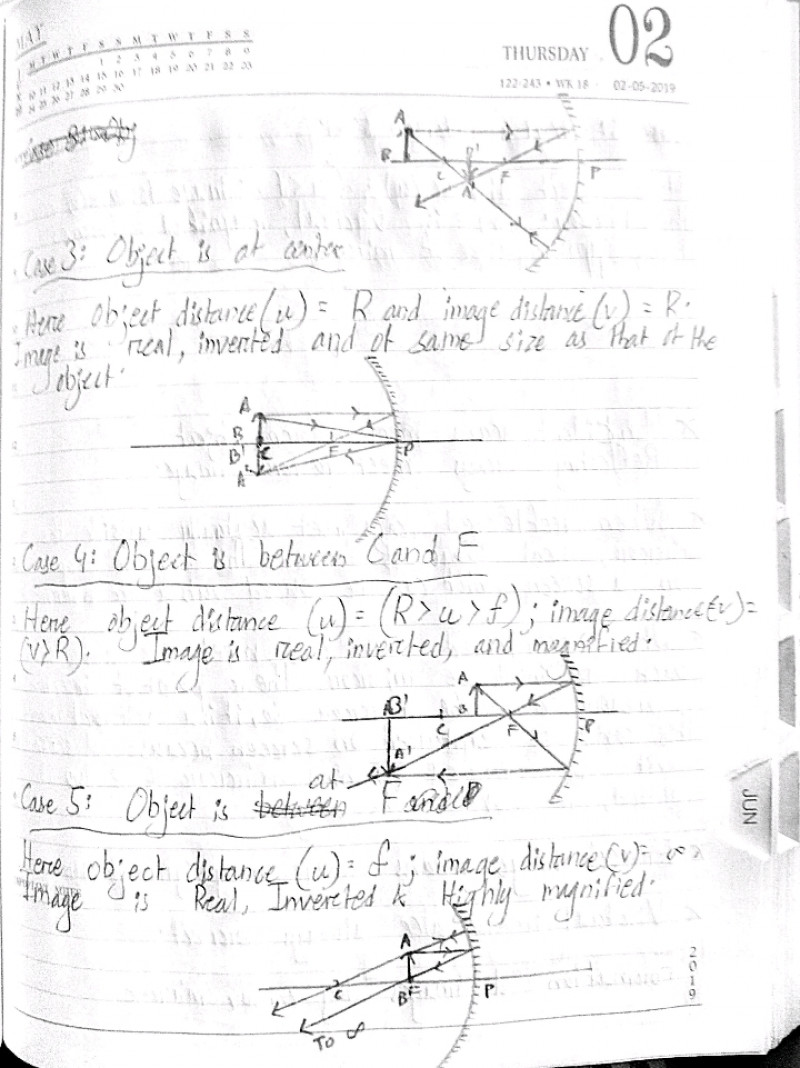 MAY
M T W T F S S M T W T F S S
1 2 3 4 5 6 7 8 9
10 11 12 13 14 15 16 17 18 19 20 21 22 23
24 25 26 27 28 29 30
THURSDAY 02
122-243 • WK 18 02-05-2019
A
B C B' F P
A'
Case 3: Object is at center
Here object distance (u) = R and image distance (v) = R.
Image is real, inverted and of same size as that of the
object.
A
B
B' C F P
A'
Case 4: Object is between C and F
Here object distance (u) = (R>u>f); image distance (v) =
(v>R). Image is real, inverted, and magnified.
A
B' B
C F P
A'
at
Case 5: Object is between F
Here object distance (u) = f; image distance (v) = ∞
Image is Real, Invereted & Highly magnified.
A
C B F P
TO ∞
JUN
2019